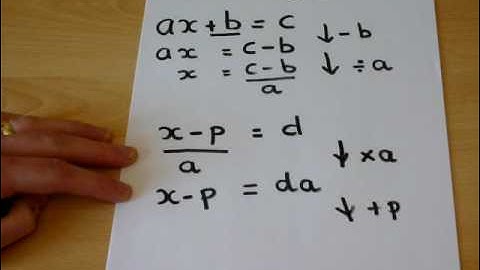 ax + b = c ↓ - b
ax = c - b
x = c - b / a ↓ ÷ a
x - p / a = d ↓ × a
x - p = da ↓ + p